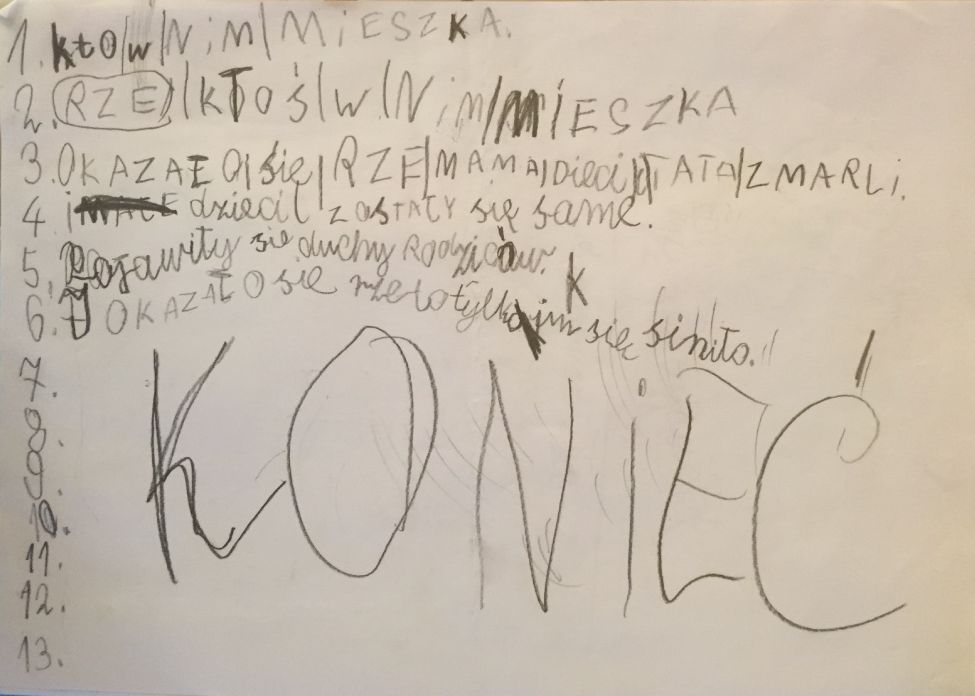 1. kto/w/NiM/MiESZKA.
2. RZE/KTOŚ/W/NiM/MiESZKA
3. OKAZAŁO/się/RZE/MAMA/Dzieci/TATA/ZMARLi.
4. i dzieci zOSTAŁY się same.
5. Pojawiły się duchy Rodziców.
6. I OKAZAŁO się rze to tylko im się śiniło.
7.
8.
9.
10.
11.
12.
13.
KONiEĆ